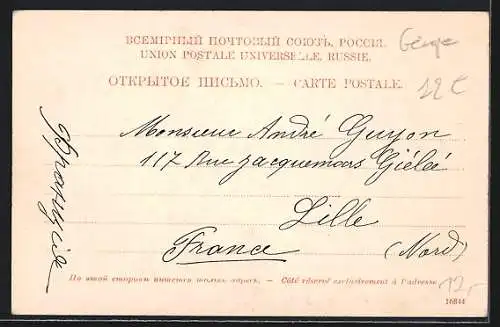 ВСЕМІРНЫЙ ПОЧТОВЫЙ СОЮЗЪ. РОССІЯ.
UNION POSTALE UNIVERSELLE. RUSSIE.
ОТКРЫТОЕ ПИСЬМО. — CARTE POSTALE.
12 €
Monsieur André Guyon
117 Rue Jacquemars Giélée
Lille
France (Nord)
Франція
На этой сторонѣ пишется только адресъ. — Côté réservé exclusivement à l'adresse
12,-
16844